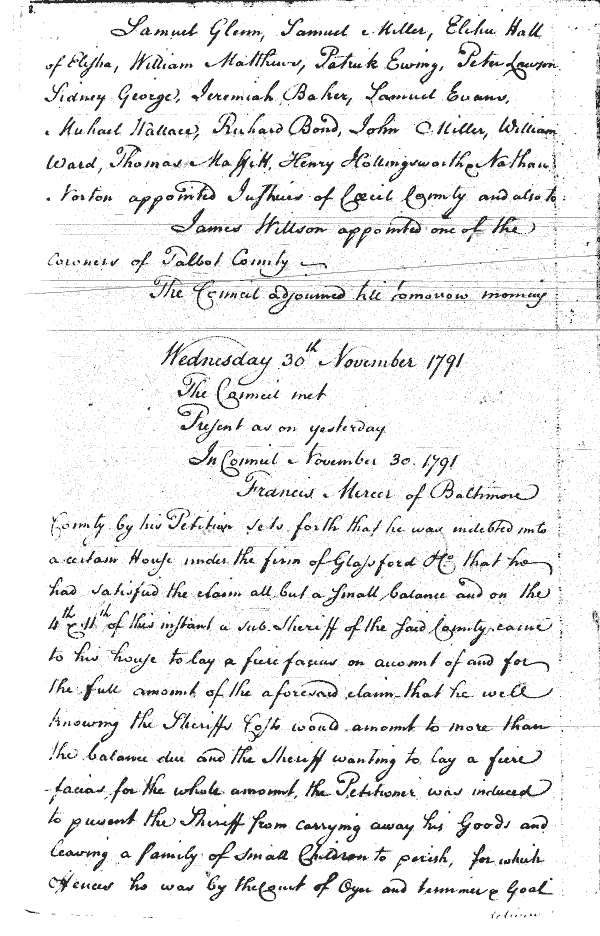 Samuel Glenn, Samuel Miller, Elihu Hall
of Elisha, William Matthews, Patrick Ewing, Peter Lawson
Sidney George, Jeremiah Baker, Samuel Evans,
Michael Wallace, Richard Bond, John Miller, William
Ward, Thomas Maffitt, Henry Hollingsworth & Nathan
Norton appointed Justices of Cecil County and also to
James Willson appointed one of the
Coroners of Talbot County
The Council adjourned till tomorrow morning
Wednesday 30th November 1791
The Council met
Present as on yesterday
In Council November 30. 1791
Francis Mercer of Baltimore
County by his Petition sets forth that he was indebted unto
a certain House under the firm of Glassford & Co that he
had satisfied the claim all but a small balance and on the
4th & 11th of this instant a sub Sheriff of the said County came
to his house to lay a fiere facias on amount of and for
the full amount of the aforesaid claim that he well
knowing the Sheriffs Costs would amount to more than
the balance due and the Sheriff wanting to lay a fiere
facias for the whole amount, the Petitioner was induced
to prevent the Sheriff from carrying away his Goods and
leaving a family of small Children to perish, for which
Offences he was by the Court of Oyer and terminer & Goal